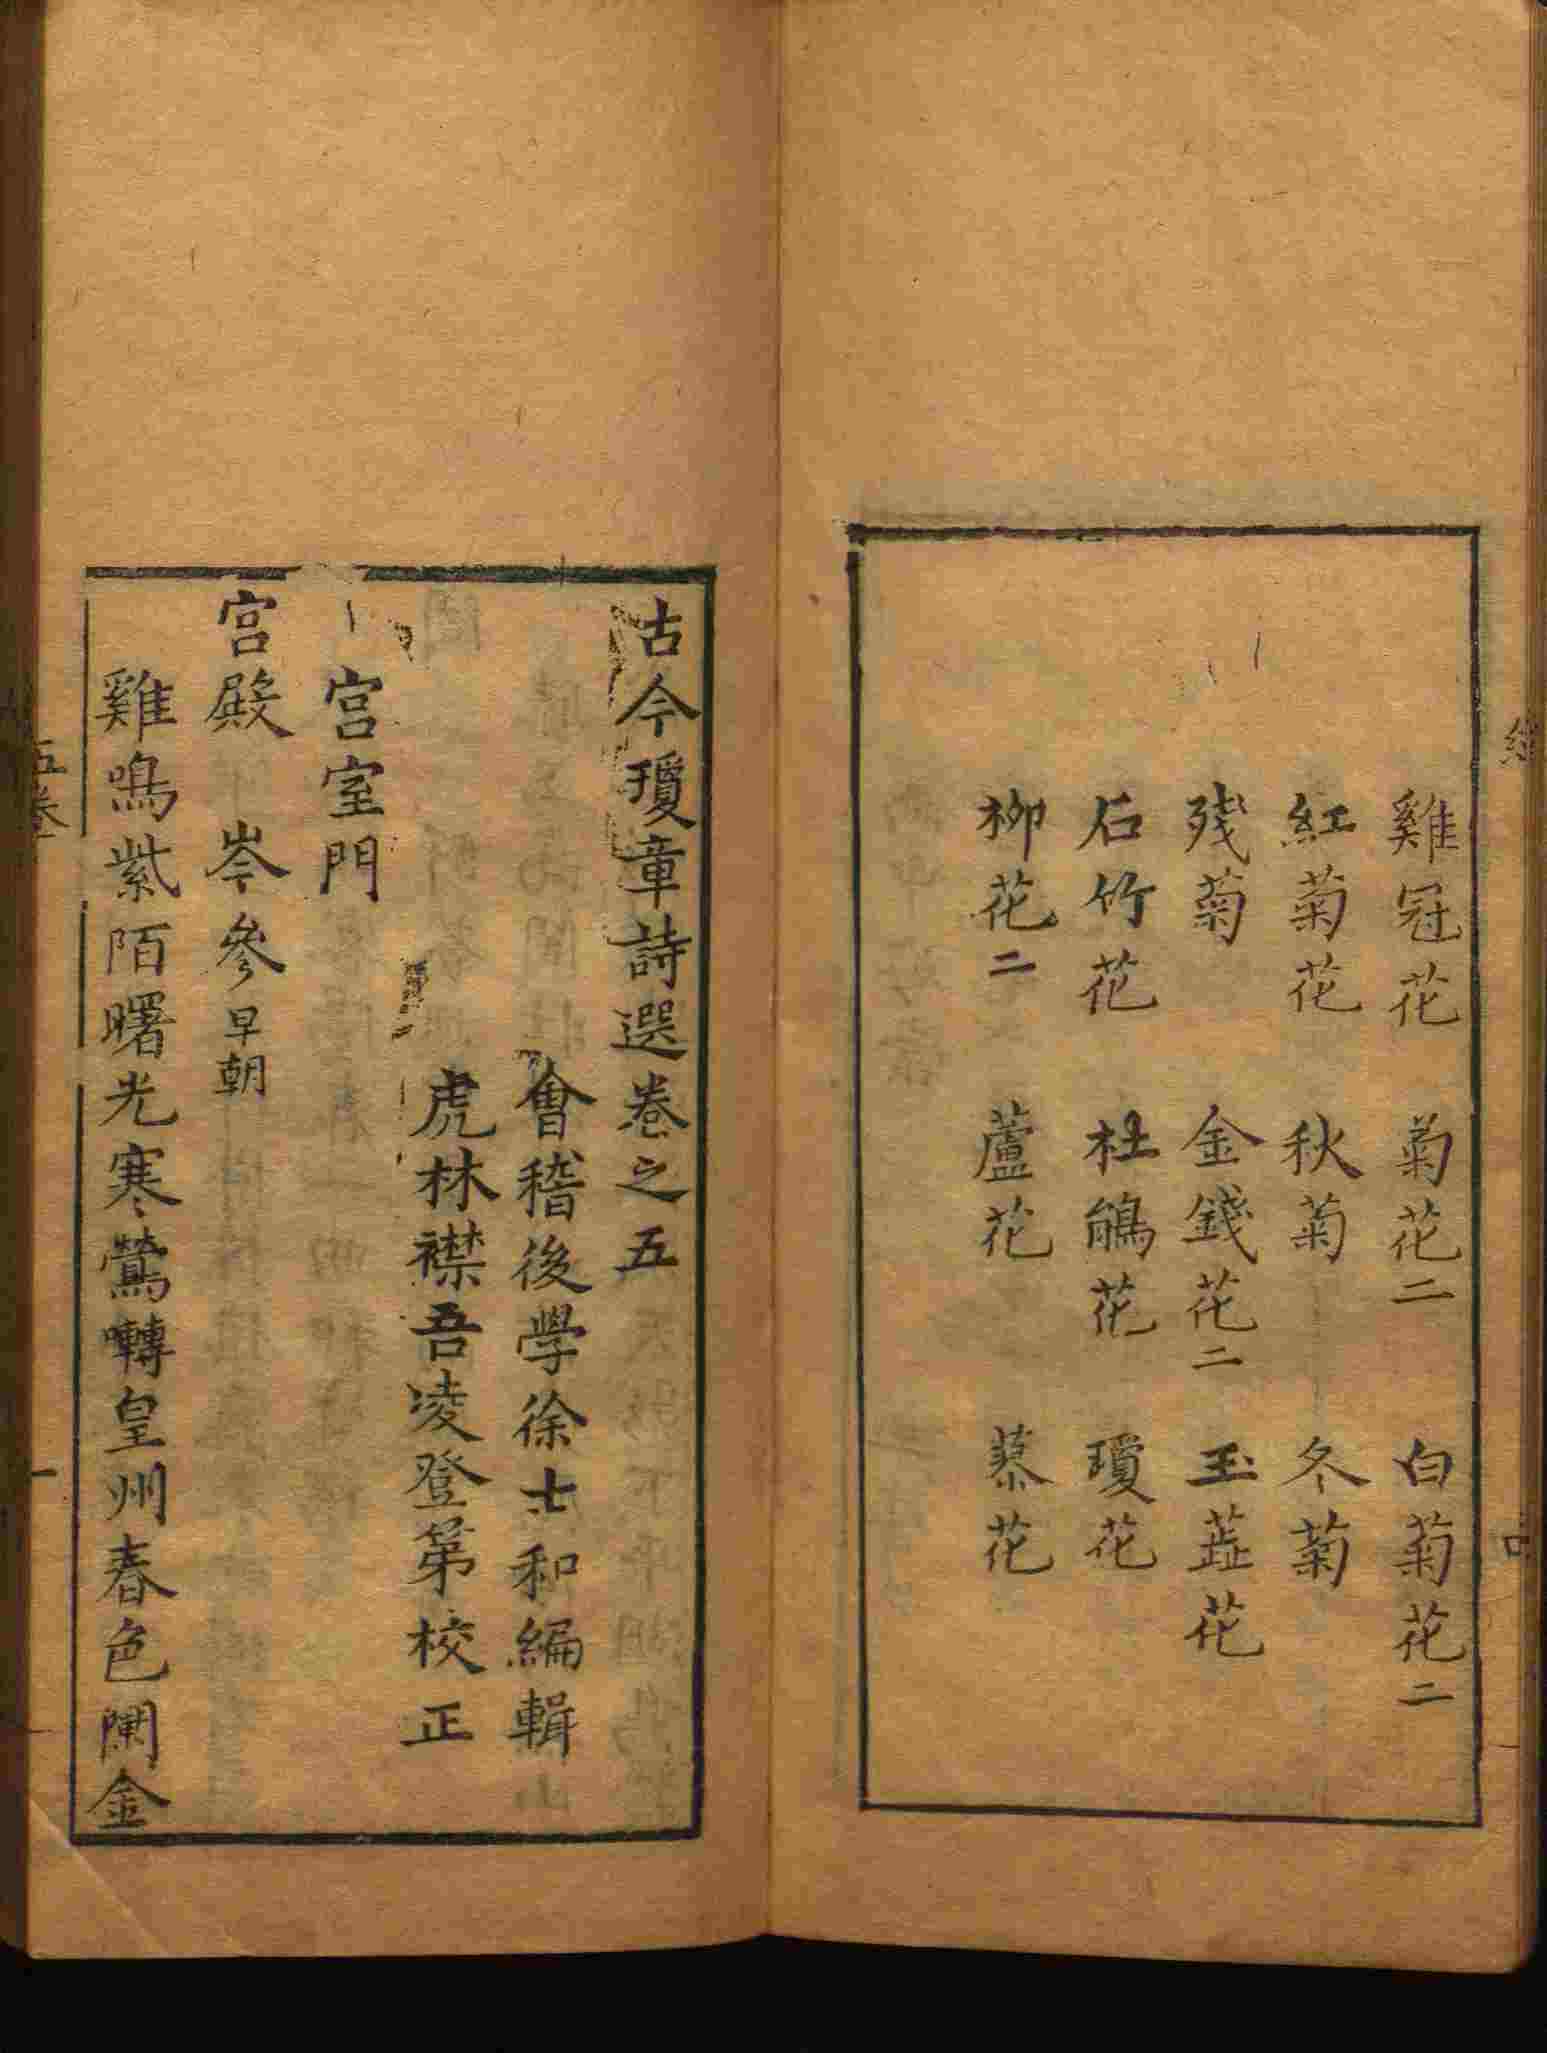 雞冠花 菊花二 白菊花二
紅菊花 秋菊 冬菊
殘菊 金錢花二 玉蕋花
石竹花 杜鵑花 瓊花
柳花二 蘆花 蓼花
古今瓊章詩選卷之五
會稽後學徐士和編輯
虎林襟吾凌登第校正
宮室門
宮殿 岑參早朝
雞鳴紫陌曙光寒鶯囀皇州春色闌金
五卷
一